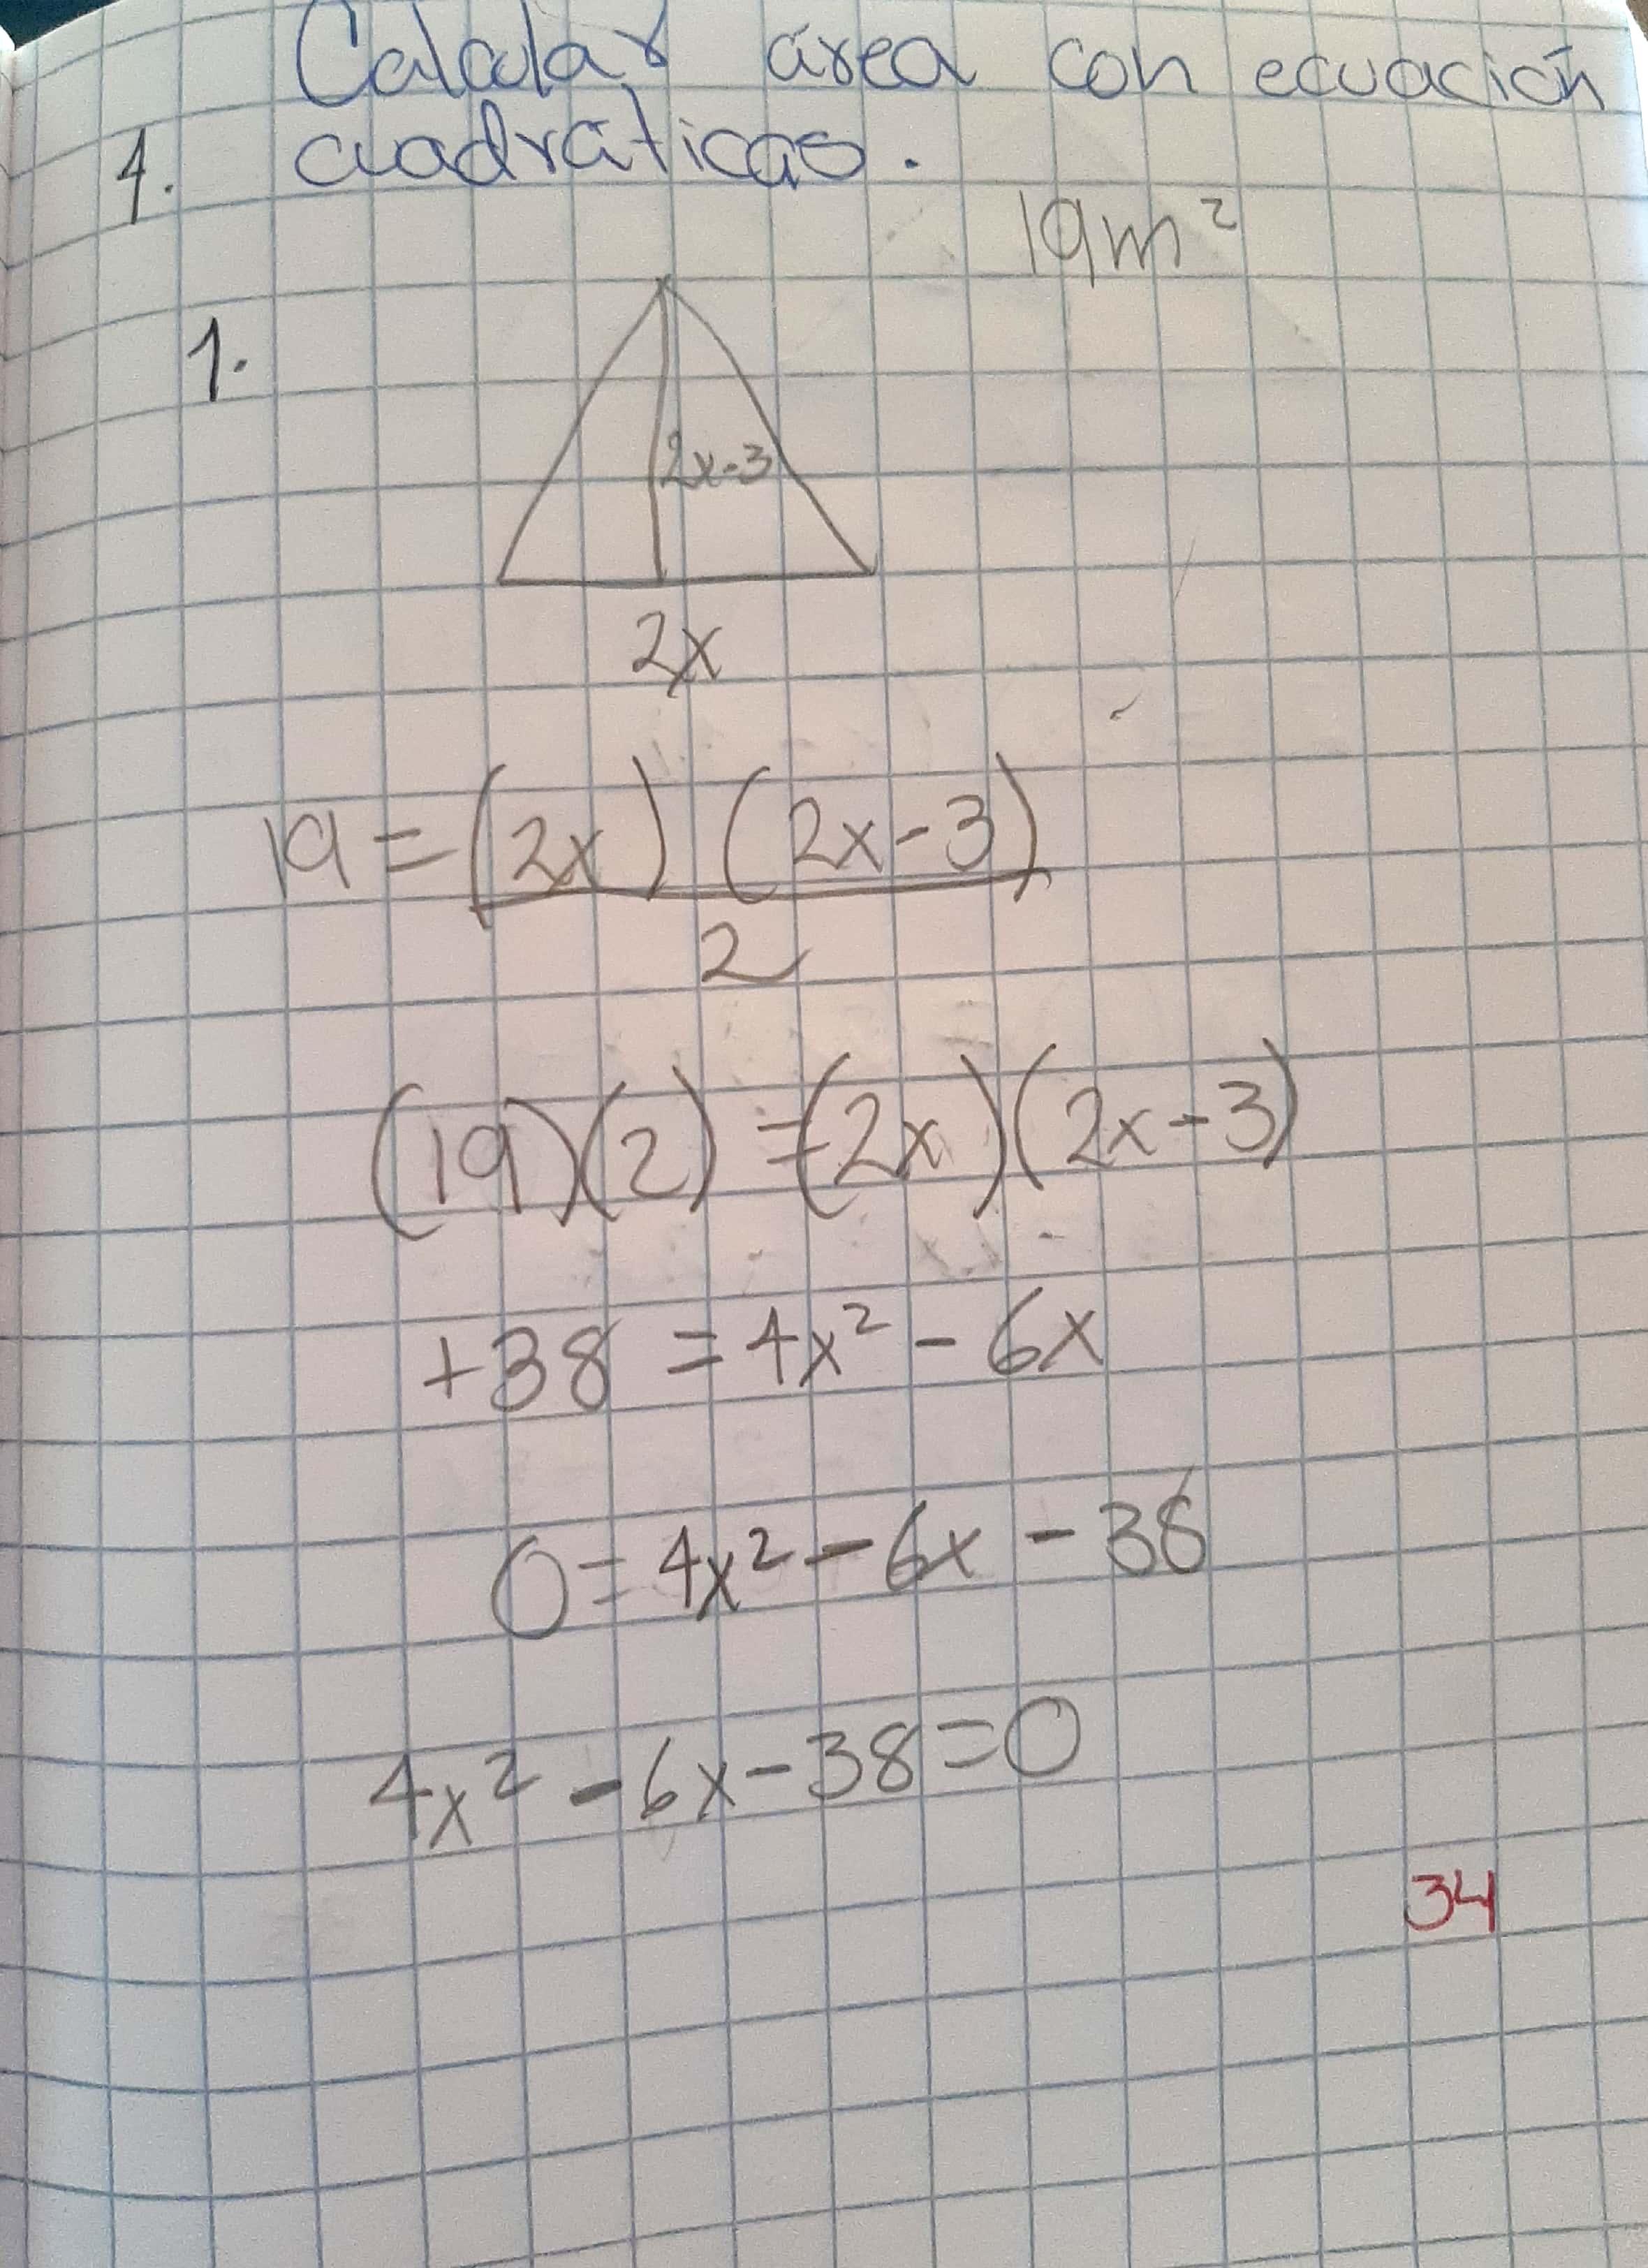 Calcular área con ecuación
4. cuadráticas.
19m²
1.
2x-3
2x
19 = (2x) (2x-3)
2
(19)(2) = (2x)(2x-3)
+38 = 4x² - 6x
0 = 4x² - 6x - 38
4x² - 6x - 38 = 0
34